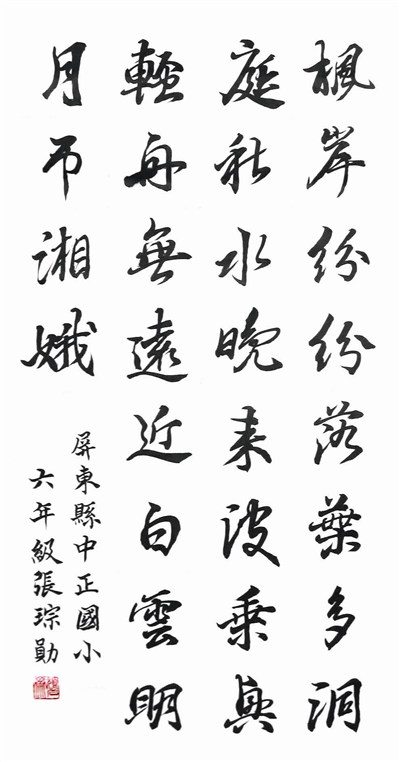 楓岸紛紛落葉多洞
庭秋水晚来波乗興
輕舟無遠近白雲明
月吊湘娥
屏東縣中正國小
六年級張琮勛